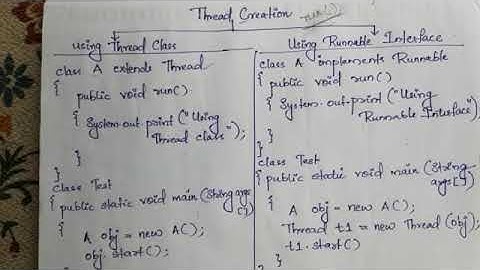 Thread Creation run()
using Thread Class
class A extends Thread
{ public void run()
{ System.out.print("Using
Thread class");
}
}
class Test
{ public static void main(String args
[])
{ A obj = new A();
obj.start();
Using Runnable Interface
class A implements Runnable
{ public void run()
{ System.out.print("Using
Runnable Interface");
}
}
class Test
{ public static void main(String
args[])
{ A obj = new A();
Thread t1 = new Thread(obj);
t1.start()
}